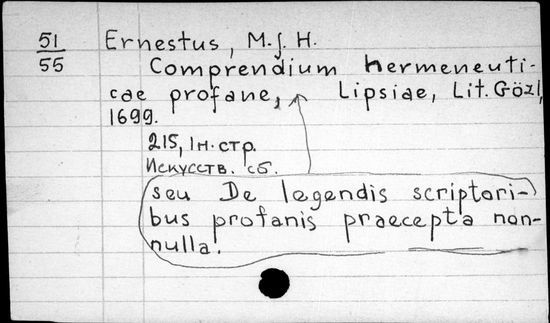 51
55
Ernestus, M. J. H.
Comprendium hermeneuti-
cae profane, Lipsiae, Lit. Gözl,
1699.
215, 1 н. стр.
Искусств. сб.
seu De legendis scriptori-
bus profanis praecepta non-
nulla.